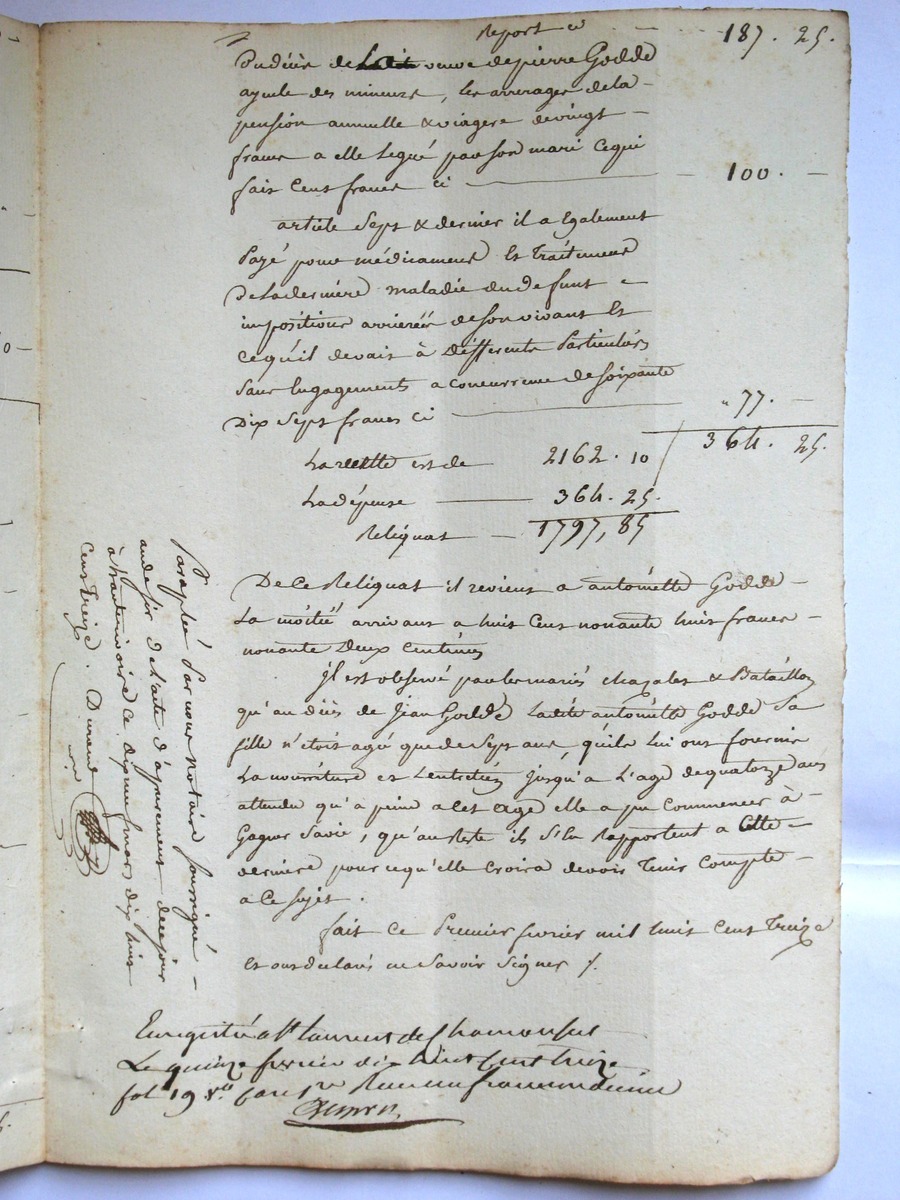 Report ci — 187. 25.
Du décès de Ladit veuve de pierre Godde
ayeule des mineurs, les arrerages dela
pension annuelle & viagere devingt
francs a elle Legué parson mari Cequi
fait Cent francs ci — 100. —
article Sept & dernier il a Egalement
Payé pour médicaments Et Traitement
De la derniere maladie du defunt &
impositions arrierées deson vivant Et
Cequ'il devait à Différents Particuliers
Sans Engagements a concurrence desoixante
Dix Sept francs ci — " 77. —
364. 25.
La recette est de 2162. 10
La dépense — 364. 25.
Reliquat — 1797, 85
De Ce Reliquat il revient a antoinette Godde —
La moitié arrivant a huit Cent nonante huit francs —
nonante Deux Centimes
Il est observé par les mariés chazales & Bataillon
qu'au décès de Jean Godde Ladite antoinette Godde Sa
fille n'etoit agé que de Sept ans, quils Lui ont fourni
La nourriture et L'entretien Jusqu'a L'age de quatorze ans
attendu qu'a peine a cet age elle a pu Commencer à —
Gagner Savie, qu'au Reste ils S'en Rapportent a Cette —
derniere pour cequ'elle croira devoir Tenir Compte —
a Ce Sujet.
fait Ce Premier fevrier mil huit Cent Treize
Et ont declaré ne Savoir Signer /.
Paraphé Par nous notaire soussigné —
au desir de L'acte d'apurement de cejour
Ce Dix huit
Cent Treize. Durand
Enregistré a St Laurent de Chamousset
Le quinze fevrier dix huit Cent Treize
fol 19 Vo Case 1re Reçu un franc un decime